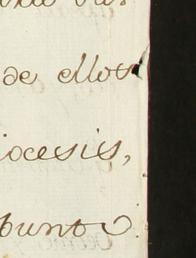 de ellos
iocesis,
punto